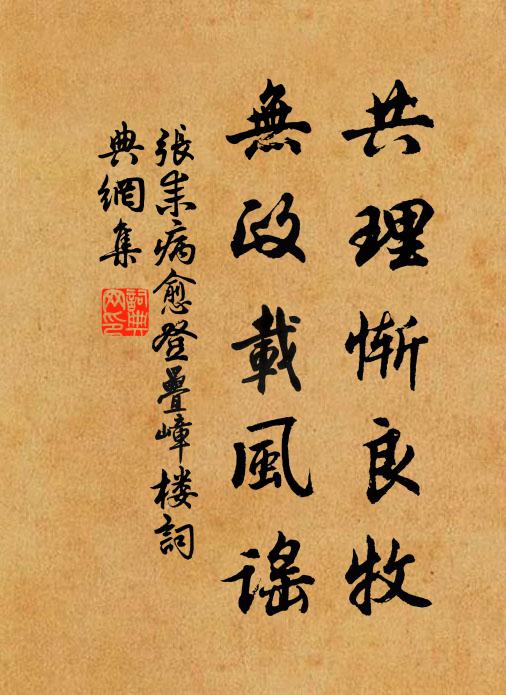 共理慚良牧
無政載風謠
張耒病愈登疊嶂楼詞
典網集
詞典
网印